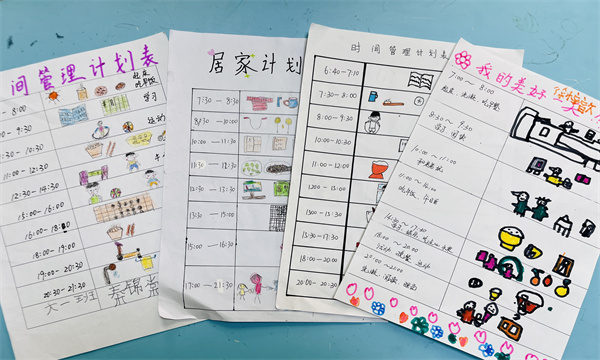 间管理计划表
- 8:00
起床
吃早饭
- 9:30
学习
- 10:30
运动
11:00 - 12:30
12:30 - 14:30
15:00 - 16:00
16:00 - 18:00
18:00 - 19:00
19:00 - 20:30
20:30 - 21:30
大一班
居家计划
7:30 - 8:30
8:30 - 10:00
10:00 - 11:30
11:30 - 12:30
12:30 - 13:30
13:30 - 15:00
15:00 - 16:30
17:00 - 21:30
时间管理计划表
6:40 - 7:10
7:30 - 8:00
8:00 - 9:30
10:00 - 11:00
11:00 - 12:00
1200 - 1300
1300 - 1530
15:30 - 17:30
18:00 - 20:00
20:00 - 20:30
我的美好
7:00 ~ 8:00
起床、洗漱、吃早餐
8:30 ~ 9:30
学习 阅读
10:00 ~ 11:00
11:00 ~ 14:00
吃午饭 午休
14:30 ~ 17:00
18:00 ~ 20:00
20:00 ~ 21:00
洗漱 阅读 睡觉